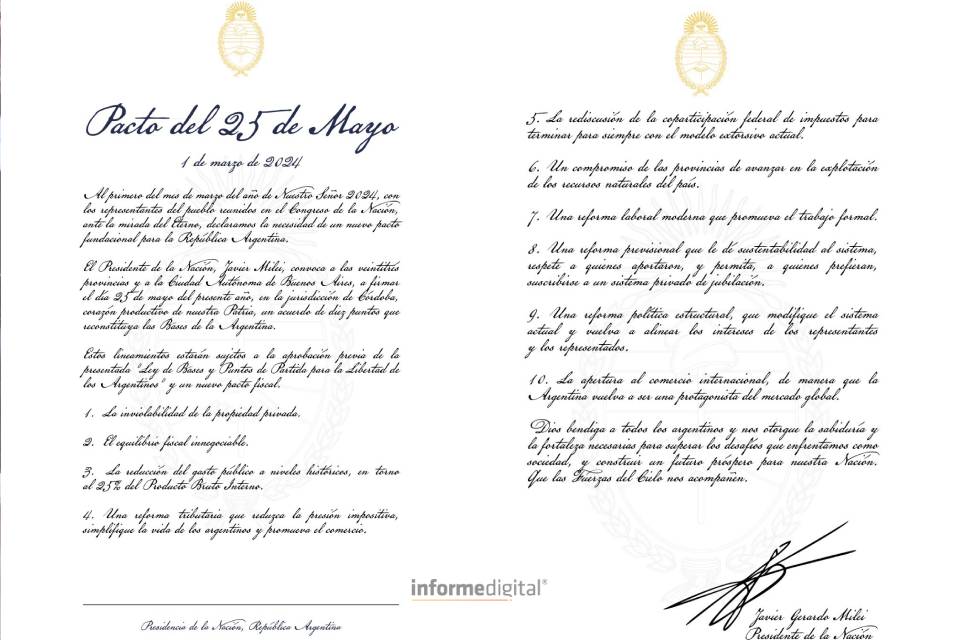 Pacto del 25 de Mayo
1 de marzo de 2024
Al primero del mes de marzo del año de Nuestro Señor 2024, con
los representantes del pueblo reunidos en el Congreso de la Nación,
ante la mirada del Eterno, declaramos la necesidad de un nuevo pacto
fundacional para la República Argentina.
El Presidente de la Nación, Javier Milei, convoca a las veintitrés
provincias y a la Ciudad Autónoma de Buenos Aires, a firmar
el día 25 de mayo del presente año, en la jurisdicción de Córdoba,
corazón productivo de nuestra Patria, un acuerdo de diez puntos que
reconstituya las Bases de la Argentina.
Estos lineamientos estarán sujetos a la aprobación previa de la
presentada "Ley de Bases y Puntos de Partida para la Libertad de
los Argentinos" y un nuevo pacto fiscal.
1. La inviolabilidad de la propiedad privada.
2. El equilibrio fiscal innegociable.
3. La reducción del gasto público a niveles históricos, en torno
al 25% del Producto Bruto Interno.
4. Una reforma tributaria que reduzca la presión impositiva,
simplifique la vida de los argentinos y promueva el comercio.
Presidencia de la Nación, República Argentina
5. La rediscusión de la coparticipación federal de impuestos para
terminar para siempre con el modelo extorsivo actual.
6. Un compromiso de las provincias de avanzar en la explotación
de los recursos naturales del país.
7. Una reforma laboral moderna que promueva el trabajo formal.
8. Una reforma previsional que le dé sustentabilidad al sistema,
respete a quienes aportaron, y permita, a quienes prefieran,
suscribirse a un sistema privado de jubilación.
9. Una reforma política estructural, que modifique el sistema
actual y vuelva a alinear los intereses de los representantes
y los representados.
10. La apertura al comercio internacional, de manera que la
Argentina vuelva a ser una protagonista del mercado global.
Dios bendiga a todos los argentinos y nos otorgue la sabiduría y
la fortaleza necesarias para superar los desafíos que enfrentamos como
sociedad, y construir un futuro próspero para nuestra Nación.
Que las Fuerzas del Cielo nos acompañen.
Javier Gerardo Milei
Presidente de la Nación
informedigital®